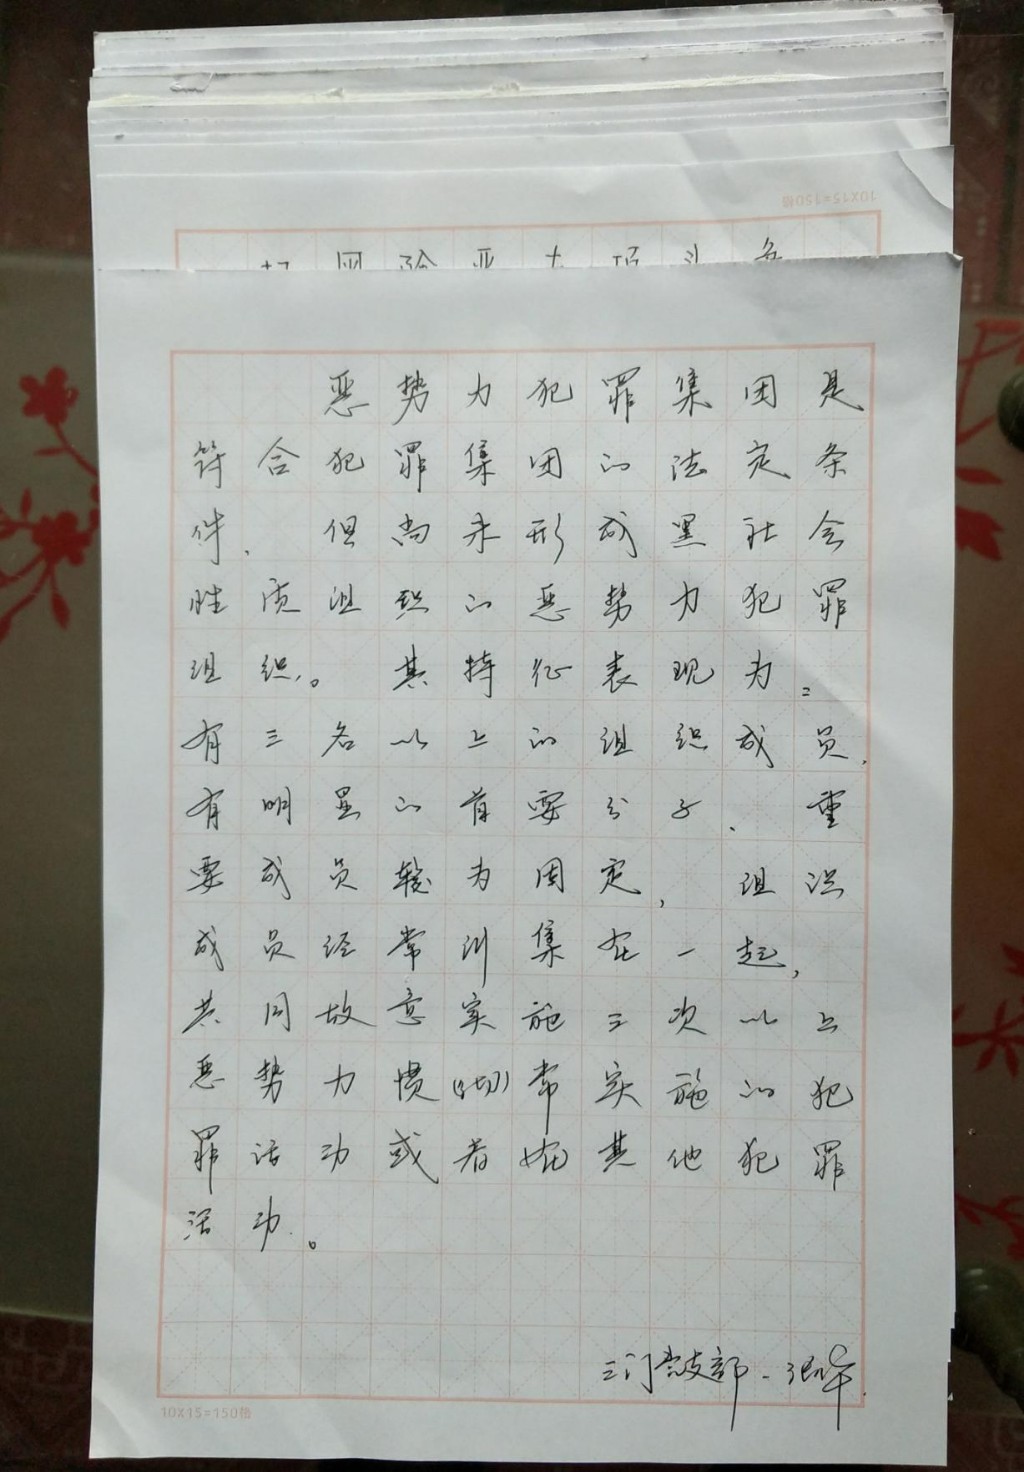 10X15=150格
恶势力犯罪集团是
符合犯罪集团的法定条
件，但尚未形成黑社会
性质组织的恶势力犯罪
组织。其特征表现为：
有三名以上的组织成员，
有明显的首要分子、重
要成员较为固定，组织
成员经常纠集在一起，
共同故意实施三次以上
恶势力惯(切)常实施的犯
罪活动或者其他犯罪
活动。
三门党支部-张华
10X15=150格